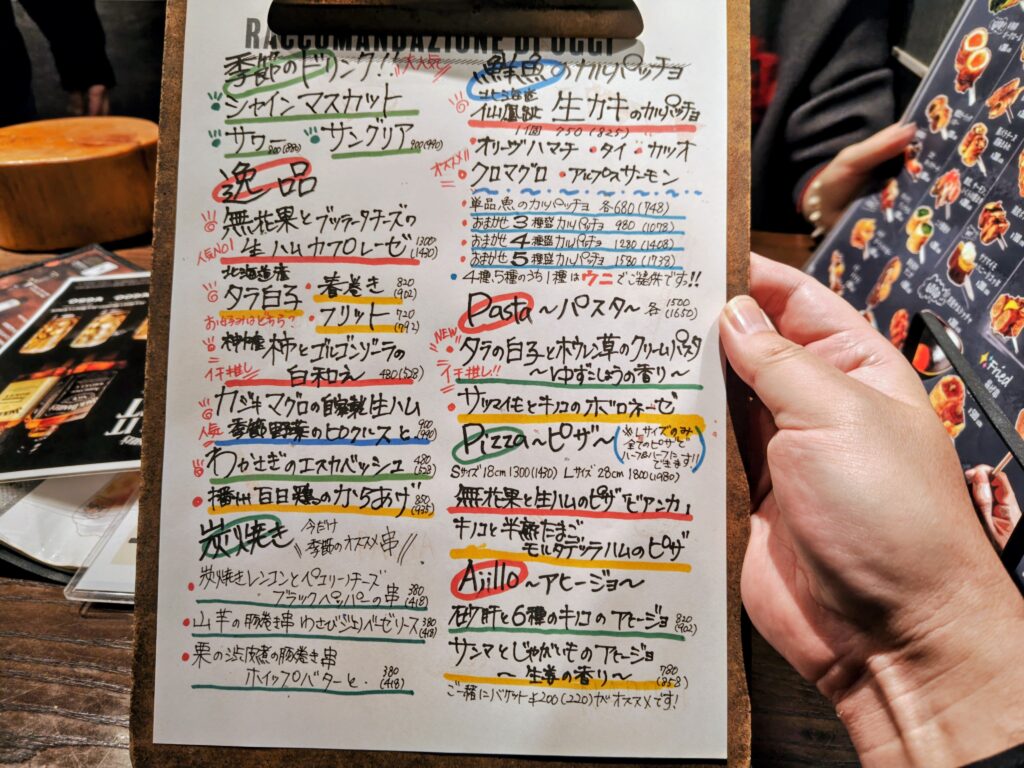 RACCOMANDAZIONE DI OGGI
季節のドリンク!! 大人気
シャインマスカット
サワー 800(880) サングリア 900(990)
逸品
無花果とブッラータチーズの
人気No1 生ハムカプレーゼ 1300(1430)
北海道産
タラ白子
お好みはどちら?
・春巻き 820(902)
・フリット 720(792)
柿とゴルゴンゾーラの
イチ推し!! 白和え 480(528)
カジキマグロの自家製生ハム
人気 季節野菜のピクルスと 900(990)
わかさぎのエスカベッシュ 480(528)
播州百日鶏のからあげ 850(935)
炭火焼き 今だけ
季節のオススメ串
炭火焼きレンコンとペコリーノチーズ
ブラックペッパーの串 380(418)
山芋の豚巻き串 わさびジェノベーゼソース 380(418)
栗の渋皮煮の豚巻き串
ホイップバターと 380(418)
鮮魚のカルパッチョ
北海道産
仙鳳趾 生カキのカルパッチョ
1個 750(825)
・オリーヴハマチ ・タイ ・カツオ
オススメ!!
クロマグロ ・アルプスサーモン
・単品魚のカルパッチョ 各680(748)
・おまかせ3種盛カルパッチョ 980(1078)
・おまかせ4種盛カルパッチョ 1280(1408)
・おまかせ5種盛カルパッチョ 1580(1738)
・4種、5種のうち1種はウニでご提供です!!
Pasta～パスタ～ 各1500(1650)
NEW
タラの白子とホウレン草のクリームパスタ
イチ推し!! ～ゆずこしょうの香り～
・サツマイモとキノコのボロネーゼ
Pizza～ピザ～
※Lサイズのみ
全てのピザで
ハーフ&ハーフ
できます!
Sサイズ18cm 1300(1430) Lサイズ28cm 1800(1980)
無花果と生ハムのピザ"ビアンカ"
キノコと半熟たまご
モルタデッラハムのピザ
Ajillo～アヒージョ～
砂肝と6種のキノコのアヒージョ 820(902)
サンマとじゃがいものアヒージョ
～生姜の香り～ 780(858)
ご一緒にバケット¥200(220)がオススメです!
Fried